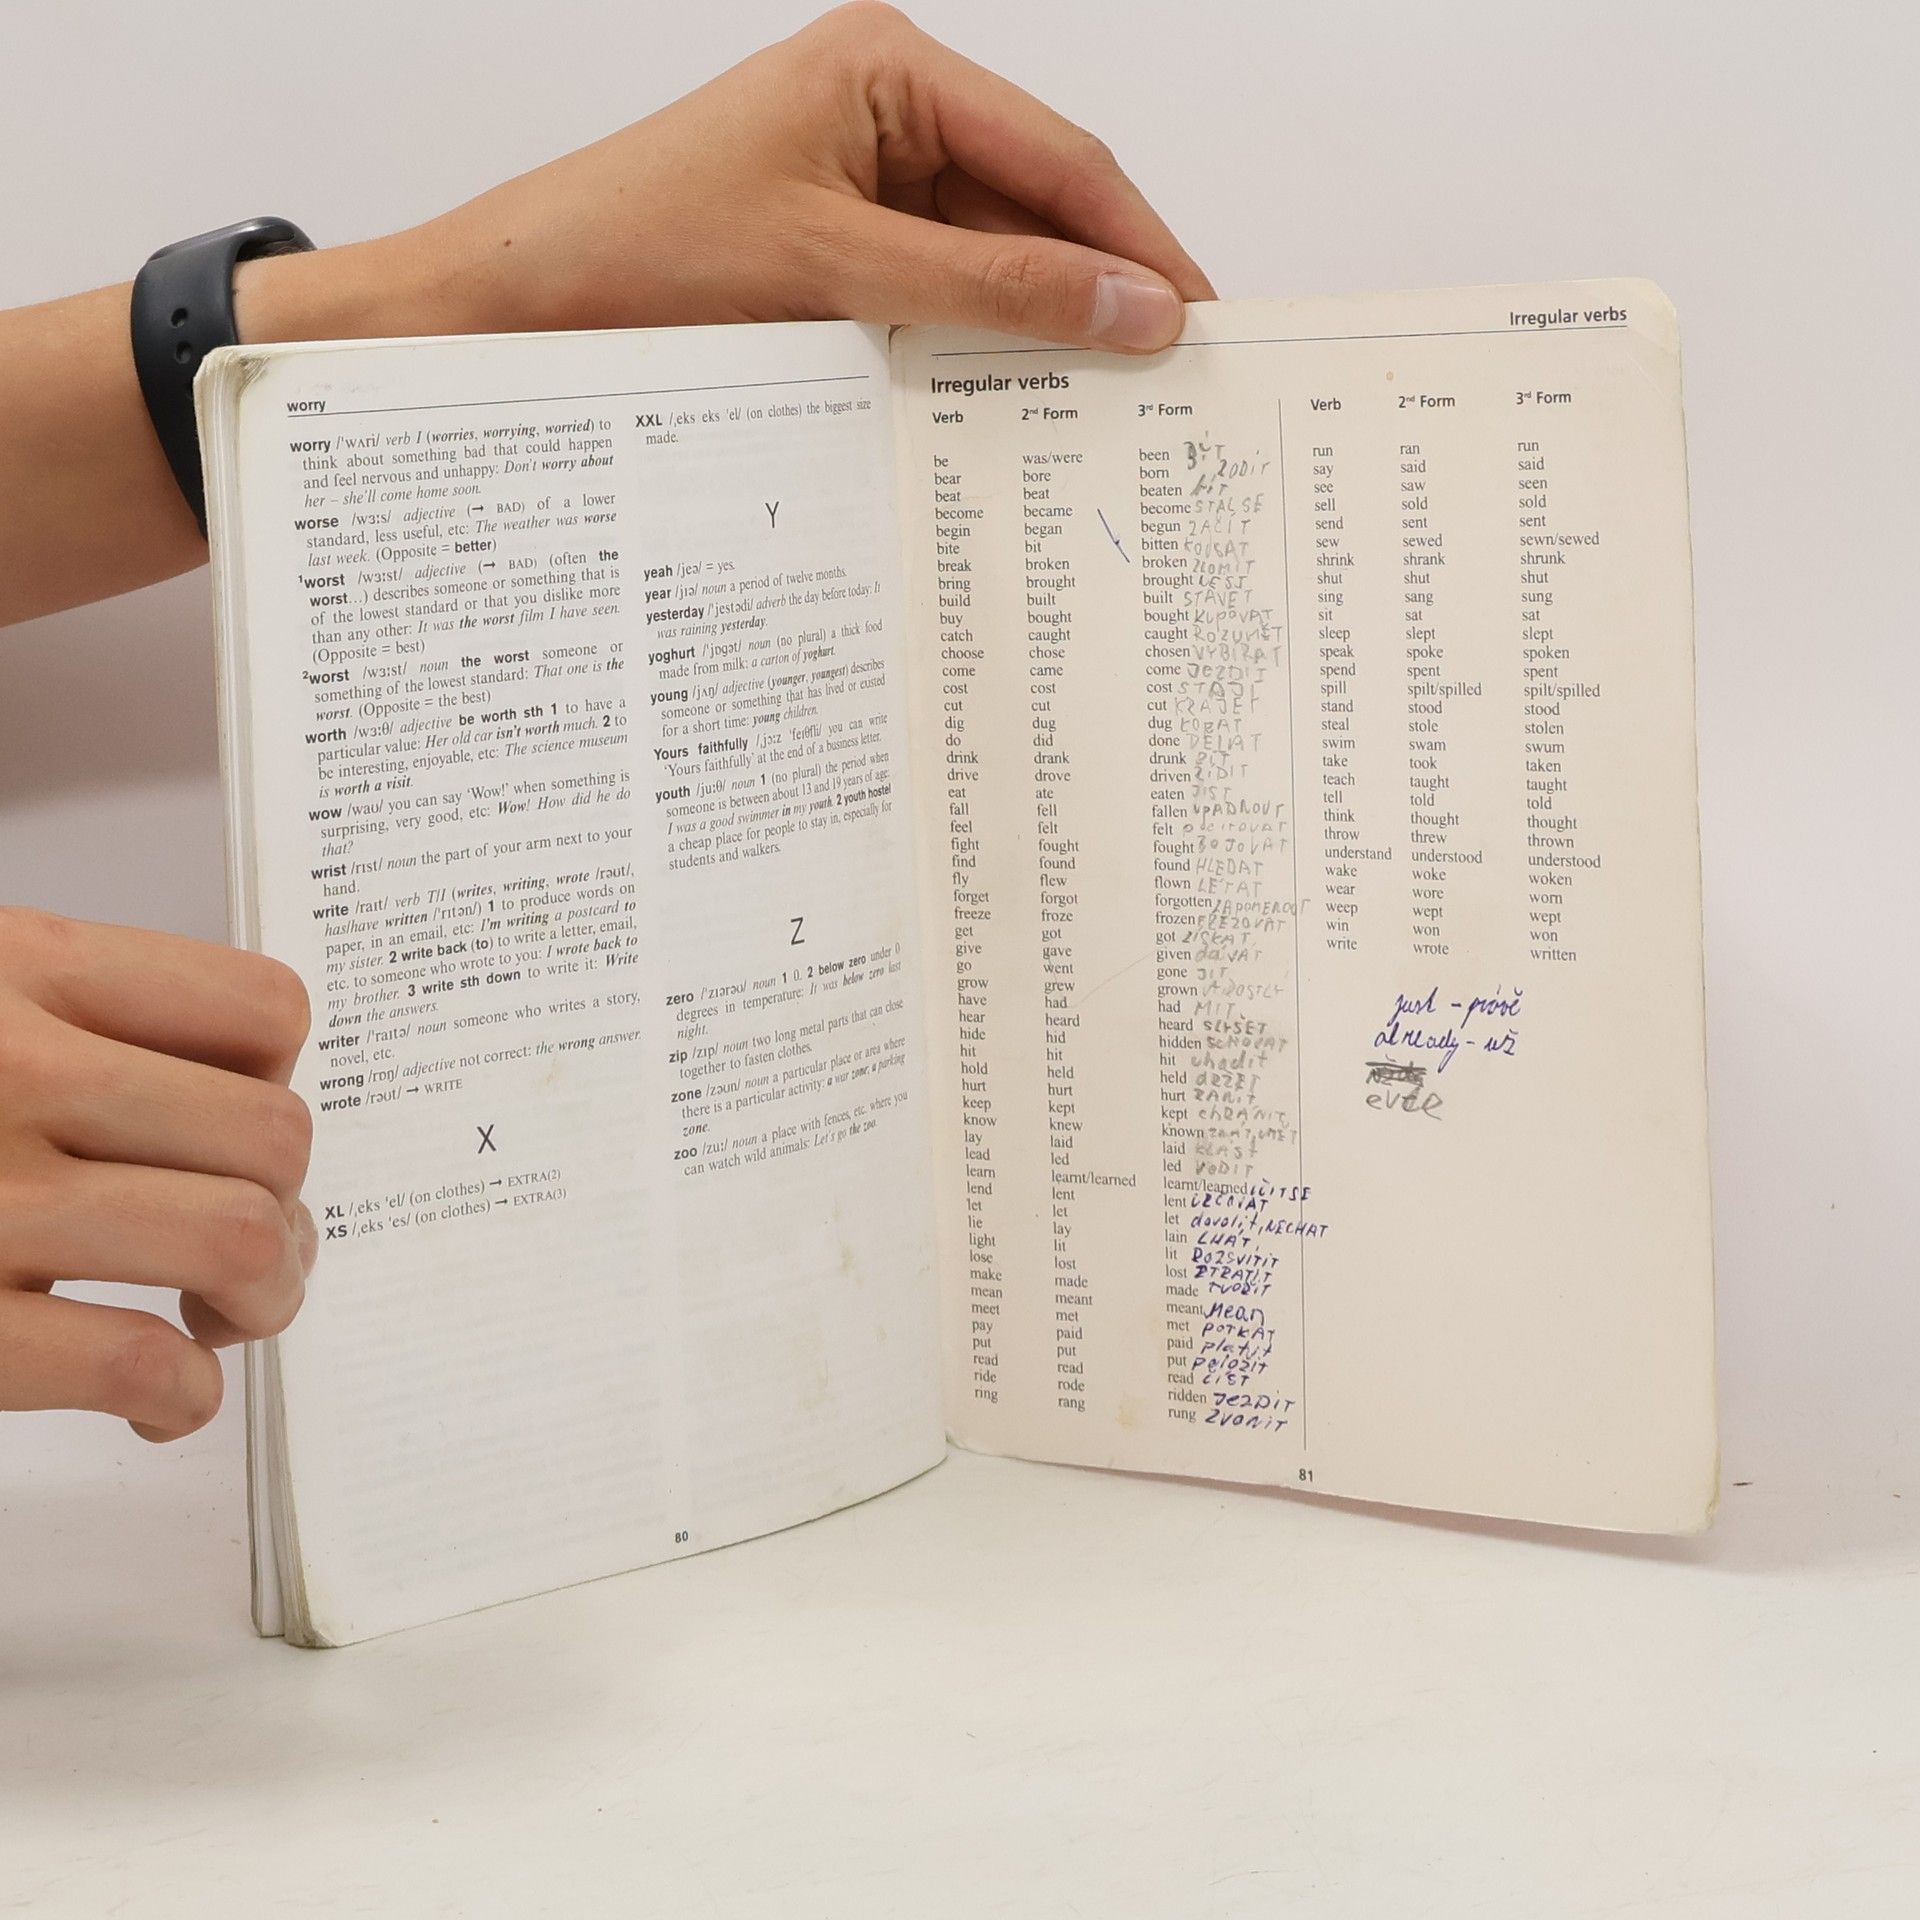 worry
worry /ˈwʌri/ verb I (worries, worrying, worried) to
think about something bad that could happen
and feel nervous and unhappy: Don't worry about
her – she'll come home soon.
worse /wɜːs/ adjective (→ BAD) of a lower
standard, less useful, etc: The weather was worse
last week. (Opposite = better)
¹worst /wɜːst/ adjective (→ BAD) (often the
worst...) describes someone or something that is
of the lowest standard or that you dislike more
than any other: It was the worst film I have seen.
(Opposite = best)
²worst /wɜːst/ noun the worst someone or
something of the lowest standard: That one is the
worst. (Opposite = the best)
worth /wɜːθ/ adjective be worth sth 1 to have a
particular value: Her old car isn't worth much. 2 to
be interesting, enjoyable, etc: The science museum
is worth a visit.
wow /waʊ/ you can say 'Wow!' when something is
surprising, very good, etc: Wow! How did he do
that?
wrist /rɪst/ noun the part of your arm next to your
hand.
write /raɪt/ verb T/I (writes, writing, wrote /rəʊt/,
has/have written /ˈrɪtən/) 1 to produce words on
paper, in an email, etc: I'm writing a postcard to
my sister. 2 write back (to) to write a letter, email,
etc. to someone who wrote to you: I wrote back to
my brother. 3 write sth down to write it: Write
down the answers.
writer /ˈraɪtə/ noun someone who writes a story,
novel, etc.
wrong /rɒŋ/ adjective not correct: the wrong answer.
wrote /rəʊt/ → WRITE
X
XL /ˌeks ˈel/ (on clothes) → EXTRA(2)
XS /ˌeks ˈes/ (on clothes) → EXTRA(3)
XXL /ˌeks eks ˈel/ (on clothes) the biggest size
made.
Y
yeah /jeə/ = yes.
year /jɪə/ noun a period of twelve months.
yesterday /ˈjestədi/ adverb the day before today: It
was raining yesterday.
yoghurt /ˈjɒgət/ noun (no plural) a thick food
made from milk: a carton of yoghurt.
young /jʌŋ/ adjective (younger, youngest) describes
someone or something that has lived or existed
for a short time: young children.
Yours faithfully /ˌjɔːz ˈfeɪθfli/ you can write
'Yours faithfully' at the end of a business letter.
youth /juːθ/ noun 1 (no plural) the period when
someone is between about 13 and 19 years of age:
I was a good swimmer in my youth. 2 youth hostel
a cheap place for people to stay in, especially for
students and walkers.
Z
zero /ˈzɪərəʊ/ noun 1 0. 2 below zero under 0
degrees in temperature: It was below zero last
night.
zip /zɪp/ noun two long metal parts that can close
together to fasten clothes.
zone /zəʊn/ noun a particular place or area where
there is a particular activity: a war zone; a parking
zone.
zoo /zuː/ noun a place with fences, etc. where you
can watch wild animals: Let's go the zoo.
80
Irregular verbs
Irregular verbs
Verb 2nd Form 3rd Form
be was/were been BÝT
bear bore born
beat beat beaten BÍT
become became become STÁL SE
begin began begun ZAČÍT
bite bit bitten KOUSAT
break broken broken ZLOMIT
bring brought brought NEST
build built built STAVĚT
buy bought bought KUPOVAT
catch caught caught ROZUMĚT
choose chose chosen VYBÍRAT
come came come JEZDIT
cost cost cost
cut cut cut KRÁJET
dig dug dug KOPAT
do did done DĚLAT
drink drank drunk PÍT
drive drove driven ŘÍDIT
eat ate eaten JÍST
fall fell fallen UPADNOUT
feel felt felt
fight fought fought BOJOVAT
find found found HLEDAT
fly flew flown LÉTAT
forget forgot forgotten ZAPOMENOUT
freeze froze frozen
get got got ZÍSKAT
give gave given dáVAT
go went gone JÍT
grow grew grown
have had had MÍT
hear heard heard SLYŠET
hide hid hidden SCHOVAT
hit hit hit uhodit
hold held held dRŽET
hurt hurt hurt RANIT
keep kept kept chRÁNIT
know knew known
lay laid laid KLÁST
lead led led VODIT
learn learnt/learned learnt/learned UČIT SE
lend lent lent
let let let dovolit, NECHAT
lie lay lain LHÁT
light lit lit ROZSVÍTIT
lose lost lost ZTRATIT
make made made TVOŘIT
mean meant meant Mean
meet met met POTKAT
pay paid paid platit
put put put položit
read read read ČÍST
ride rode ridden JEZDIT
ring rang rung ZVONIT
Verb 2nd Form 3rd Form
run ran run
say said said
see saw seen
sell sold sold
send sent sent
sew sewed sewn/sewed
shrink shrank shrunk
shut shut shut
sing sang sung
sit sat sat
sleep slept slept
speak spoke spoken
spend spent spent
spill spilt/spilled spilt/spilled
stand stood stood
steal stole stolen
swim swam swum
take took taken
teach taught taught
tell told told
think thought thought
throw threw thrown
understand understood understood
wake woke woken
wear wore worn
weep wept wept
win won won
write wrote written
just – právě
already – už
eveR
81